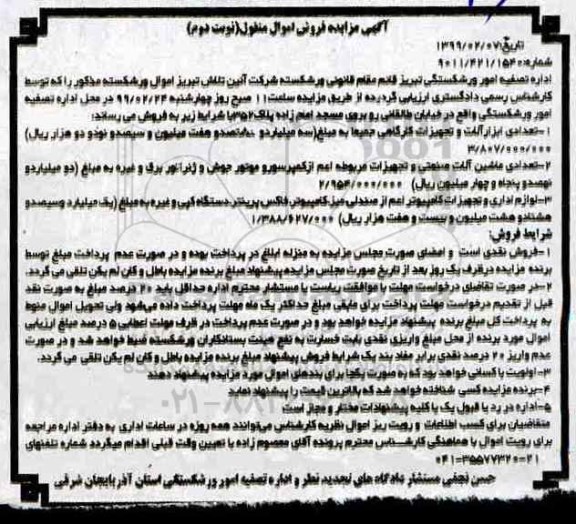 آگهی مزایده فروش اموال منقول(نوبت دوم)
تاریخ:۱۳۹۹/۰۲/۰۷
شماره:۹۰۱۱/۴۲۱/۱۵۴۰
اداره تصفیه امور ورشکستگی تبریز قائم مقام قانونی ورشکسته شرکت آئین تلاش تبریز اموال ورشکسته مذکور را که توسط
کارشناس رسمی دادگستری ارزیابی گردیده از طریق مزایده ساعت۱۱ صبح روز چهارشنبه ۹۹/۰۲/۲۴ در محل اداره تصفیه
امور ورشکستگی واقع در خیابان طالقانی رو بروی مسجد امام زاده پلاک۳۵۲با شرایط زیر به فروش می رساند:
۱-تعدادی ابزار آلات و تجهیزات کارگاهی جمیعا به مبلغ(سه میلیاردو هشتصدو هفت میلیون و سیصدو نودو دو هزار ریال)
۲-تعدادی ماشین آلات صنعتی و تجهیزات مربوطه اعم ازکمپرسورو موتور جوش و ژنراتور برق و غیره به مبلغ (دو میلیاردو
نهصدو پنجاه و چهار میلیون ریال) ۲/۹۵۴/۰۰۰/۰۰۰
۳-لوازم اداری و تجهیزات کامپیوتر اعم از صندلی،میز،کامپیوتر،فاکس،پرینتر،دستگاه کپی و غیره به مبلغ (یک میلیارد وسیصدو
هشتادو هشت میلیون و بیست و هفت هزار ریال) ۱/۳۸۸/۶۲۷/۰۰۰
شرایط فروش:
۱-فروش نقدی است و امضای صورت مجلس مزایده به منزله ابلاغ در پرداخت بوده و در صورت عدم پرداخت مبلغ توسط
برنده مزایده درظرف یک روز بعد از تاریخ صورت مجلس مزایده پیشنهاد مبلغ برنده مزایده باطل و کان لم یکن تلقی می گردد.
۲-در صورت تقاضای درخواست مهلت با موافقت ریاست یا مستشار محترم اداره حداقل باید ۲۰ درصد مبلغ به صورت نقد
قبل از تقدیم درخواست مهلت پرداخت برای مابقی مبلغ حداکثر یک ماه مهلت پرداخت داده می‌شود ولی تحویل اموال منوط
به پرداخت کل مبلغ برنده پیشنهاد مزایده خواهد بود و در صورت عدم پرداخت در ظرف مهلت اعطایی ۵ درصد مبلغ ارزیابی
اموال مورد برنده از محل مبلغ واریزی نقدی بابت خسارت به نفع هیئت بستانکاران ورشکسته ضبط خواهد شد و در صورت
عدم واریز ۲۰ درصد نقدی برابر مفاد بند یک شرایط فروش پیشنهاد مبلغ برنده مزایده باطل و کان لم یکن تلقی می گردد.
۳-اولویت با کسانی خواهد بود که به صورت یکجا برای بندهای اموال مورد مزایده پیشنهاد دهند
۴-برنده مزایده کسی شناخته خواهد شد که بالاترین قیمت را پیشنهاد نماید
۵-اداره در رد یا قبول یک یا کلیه پیشنهادات مختار و مجاز است
متقاضیان برای کسب اطلاعات و رویت ریز اموال نظریه کارشناس می‌توانند همه روزه در ساعات اداری به دفتر اداره مراجعه
برای رویت اموال با هماهنگی کارشناس محترم پرونده آقای معصوم زاده با تعیین وقت قبلی اقدام میگردد شماره تلفنهای
۰۴۱-۳۵۵۷۷۳۲۰-۲۱
حسن نجفی مستشار دادگاه های تجدید نظر و اداره تصفیه امور ورشکستگی استان آذربایجان شرقی